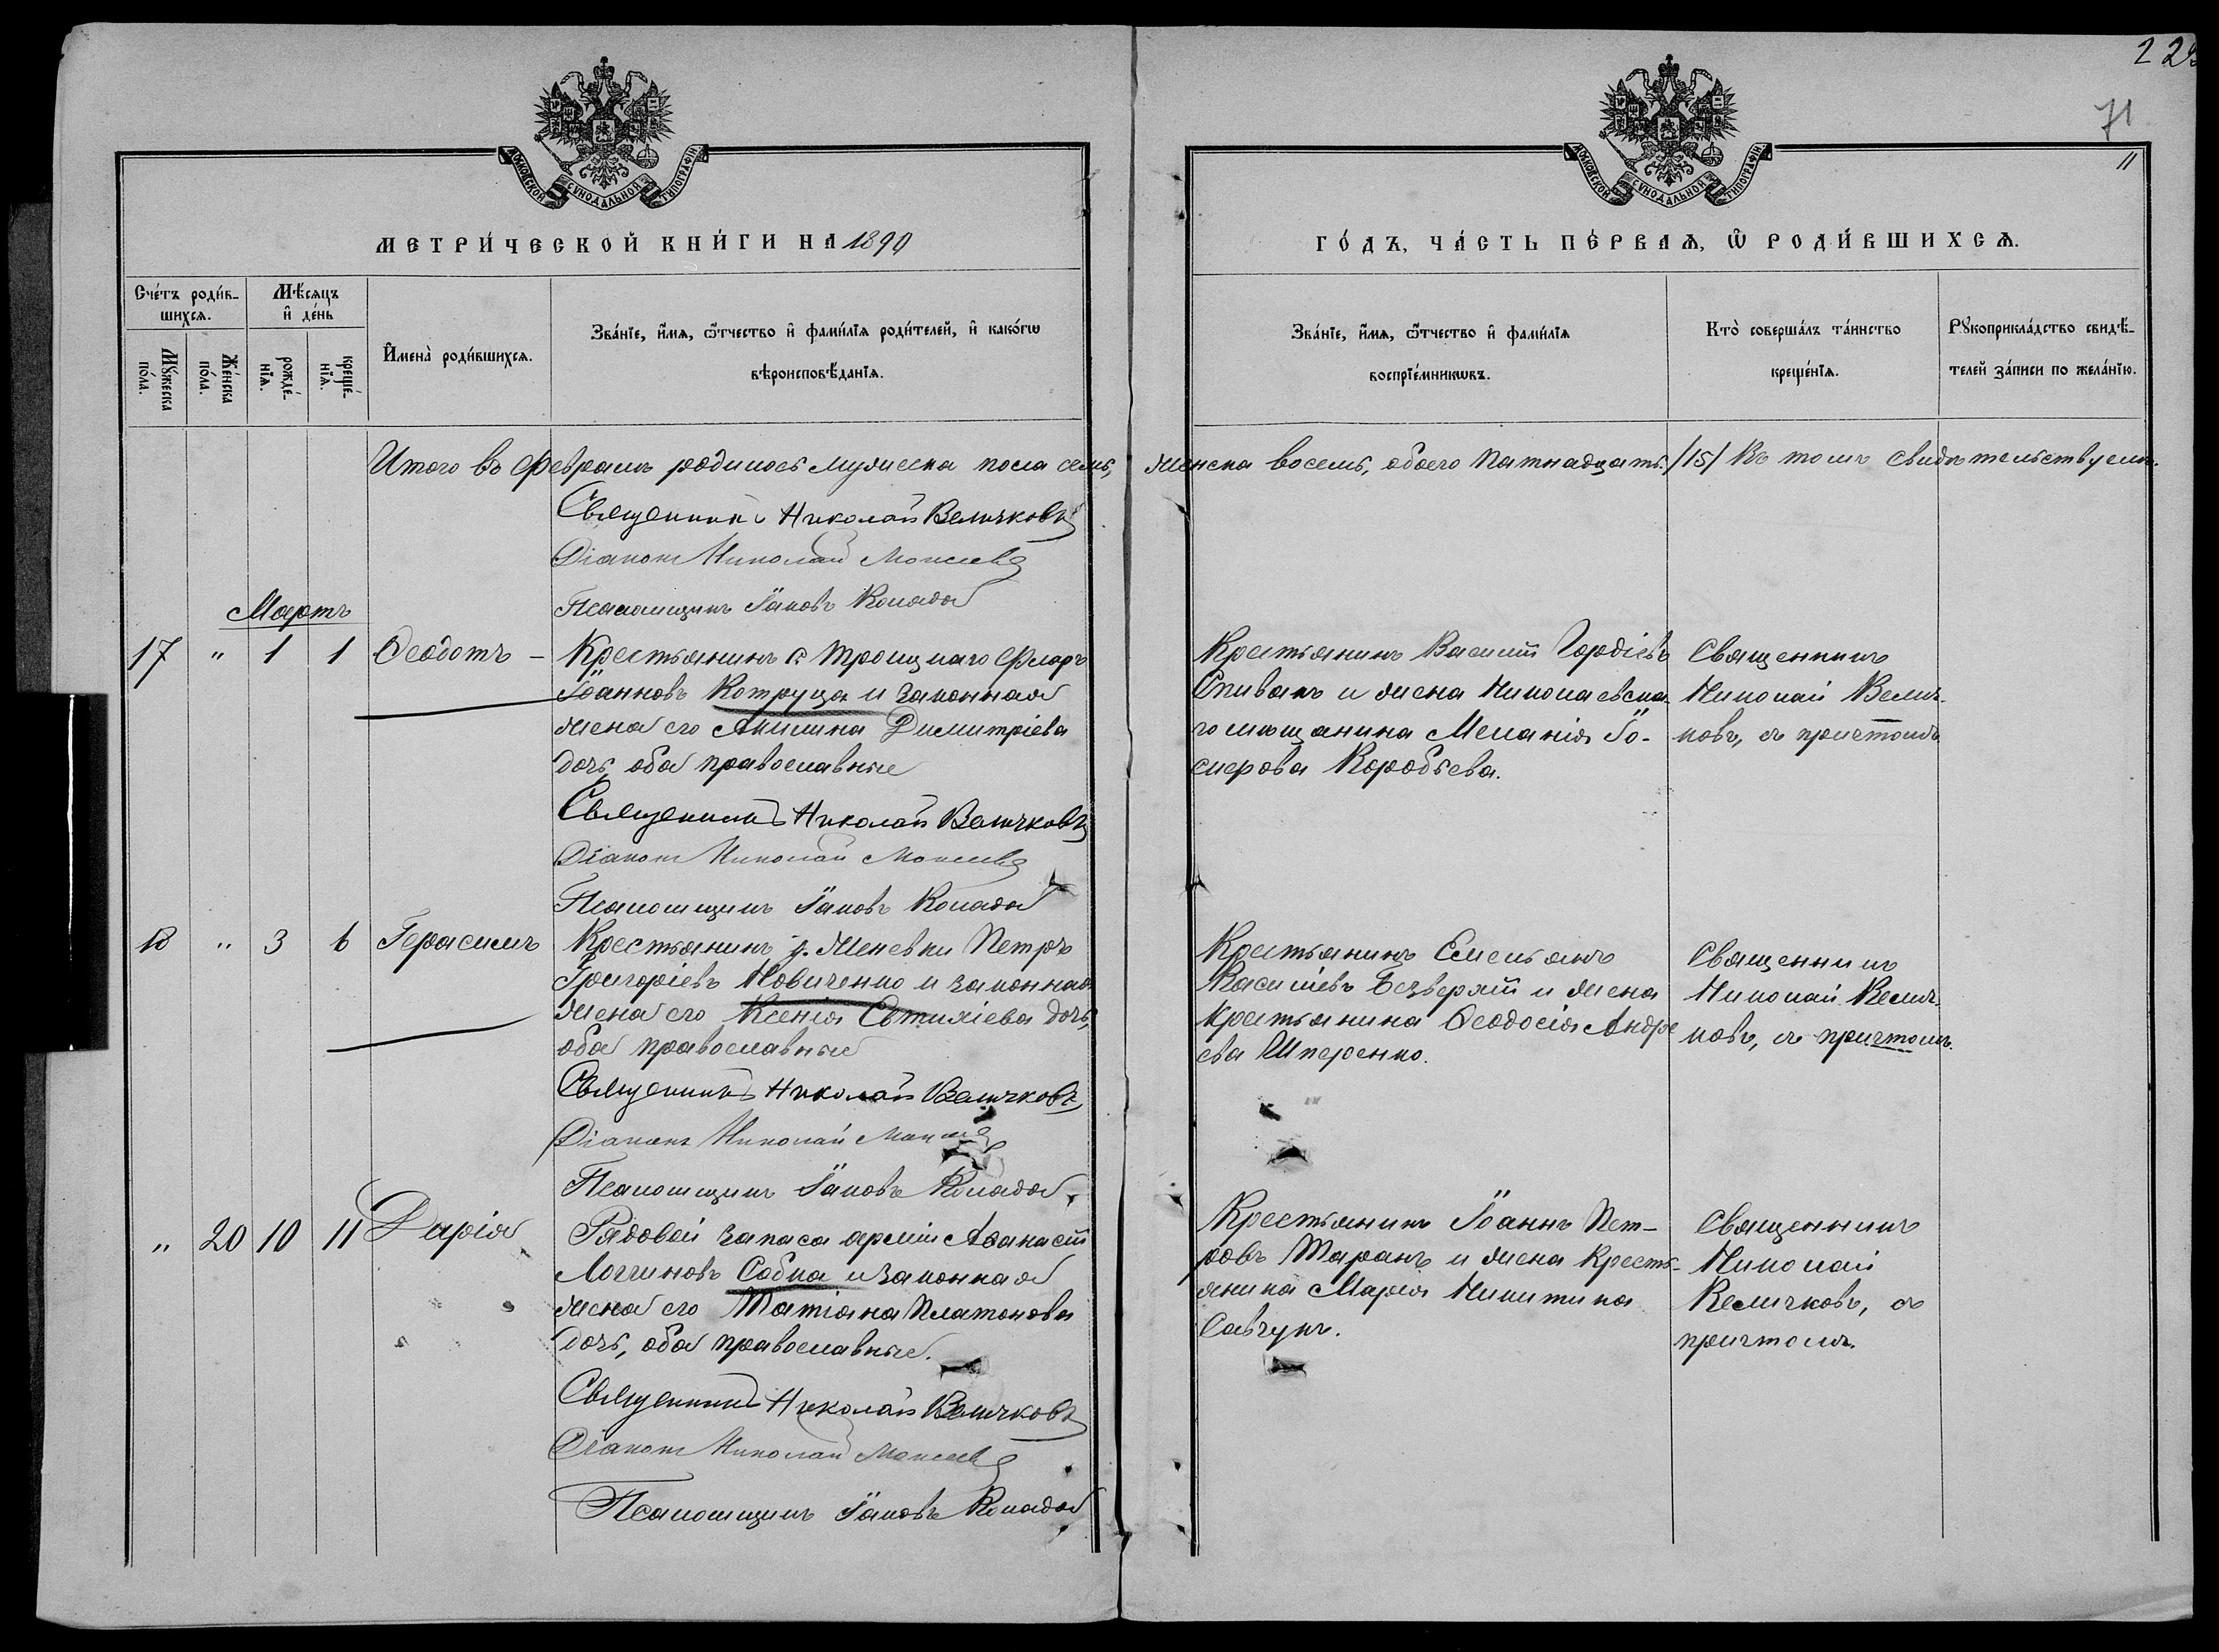 2 2
71
11
МОСКОВСКОЙ СѴНОДАЛЬНОЙ ТИПОГРАФІИ
МОСКОВСКОЙ СѴНОДАЛЬНОЙ ТИПОГРАФІИ
МЕТРИ́ЧЕСКОЙ КНИ́ГИ НА 1890
ГО́ДЪ, ЧА́СТЬ ПЕ́РВАѦ, Ѽ РОДИ́ВШИХСѦ.
Сче́тъ роди́в-
шихсѧ.
Мꙋ́жеска
по́ла.
Же́нска
по́ла.
Мѣ́сѧцъ
и҆ де́нь
рожде́-
нїѧ.
креще́-
нїѧ.
И҆мена̀ роди́вшихсѧ.
Зва́нїе, и҆́мѧ, ѻ҆́тчество и҆ фами́лїѧ роди́телей, и҆ како́гѡ
вѣроисповѣ́данїѧ.
Зва́нїе, и҆́мѧ, ѻ҆́тчество и҆ фами́лїѧ
воспрїе́мникѡвъ.
Кто̀ соверша́лъ та́инство
креще́нїѧ.
Рꙋкоприкла́дство свидѣ́-
телей за́писи по жела́нїю.
Итого въ Февралѣ родилось мужеска пола семь, женска восемь, обоего пятнадцать. /15/ Въ томъ свидѣтельствуемъ.
Священникъ Николай Величковъ
Діаконъ Николай Моисеевъ
Псаломщикъ Іаковъ Колада
Мартъ
17 " 1 1 Ѳеодотъ –
Крестьянинъ с. Троицкаго Флоръ
Іоанновъ Котруца и законная
жена его Акилина Димитріева
дочь, оба православные
Священникъ Николай Величковъ
Діаконъ Николай Моисеевъ
Псаломщикъ Іаковъ Колада
Крестьянинъ Василій Гордіевъ
Спивакъ и жена Николаевска-
го мѣщанина Меланія Іо-
Коробьева.
Священникъ
Николай Велич-
ковъ, съ причтомъ
18 " 3 6 Герасимъ
Крестьянинъ д. Петръ
Григоріевъ Новиченко и законная
жена его Ксенія дочь,
оба православные
Священникъ Николай Величковъ
Діаконъ Николай
Псаломщикъ Іаковъ Колада
Крестьянинъ Емельянъ
Василіевъ Безверхій и жена
крестьянина Ѳеодосія Андре
ева
Священникъ
Николай Велич-
ковъ, съ причтомъ.
" 20 10 11 Дарія
Рядовой запаса арміи Аѳанасій
Логгиновъ Собка и законная
жена его Татіана Платонова
дочь, оба православные.
Священникъ Николай Величковъ
Діаконъ Николай Моисеевъ
Псаломщикъ Іаковъ Колада
Крестьянинъ Іоаннъ Пет-
ровъ Таранъ и жена кресть-
янина Марія Никитина
Савчукъ.
Священникъ
Николай
Величковъ, съ
причтомъ.